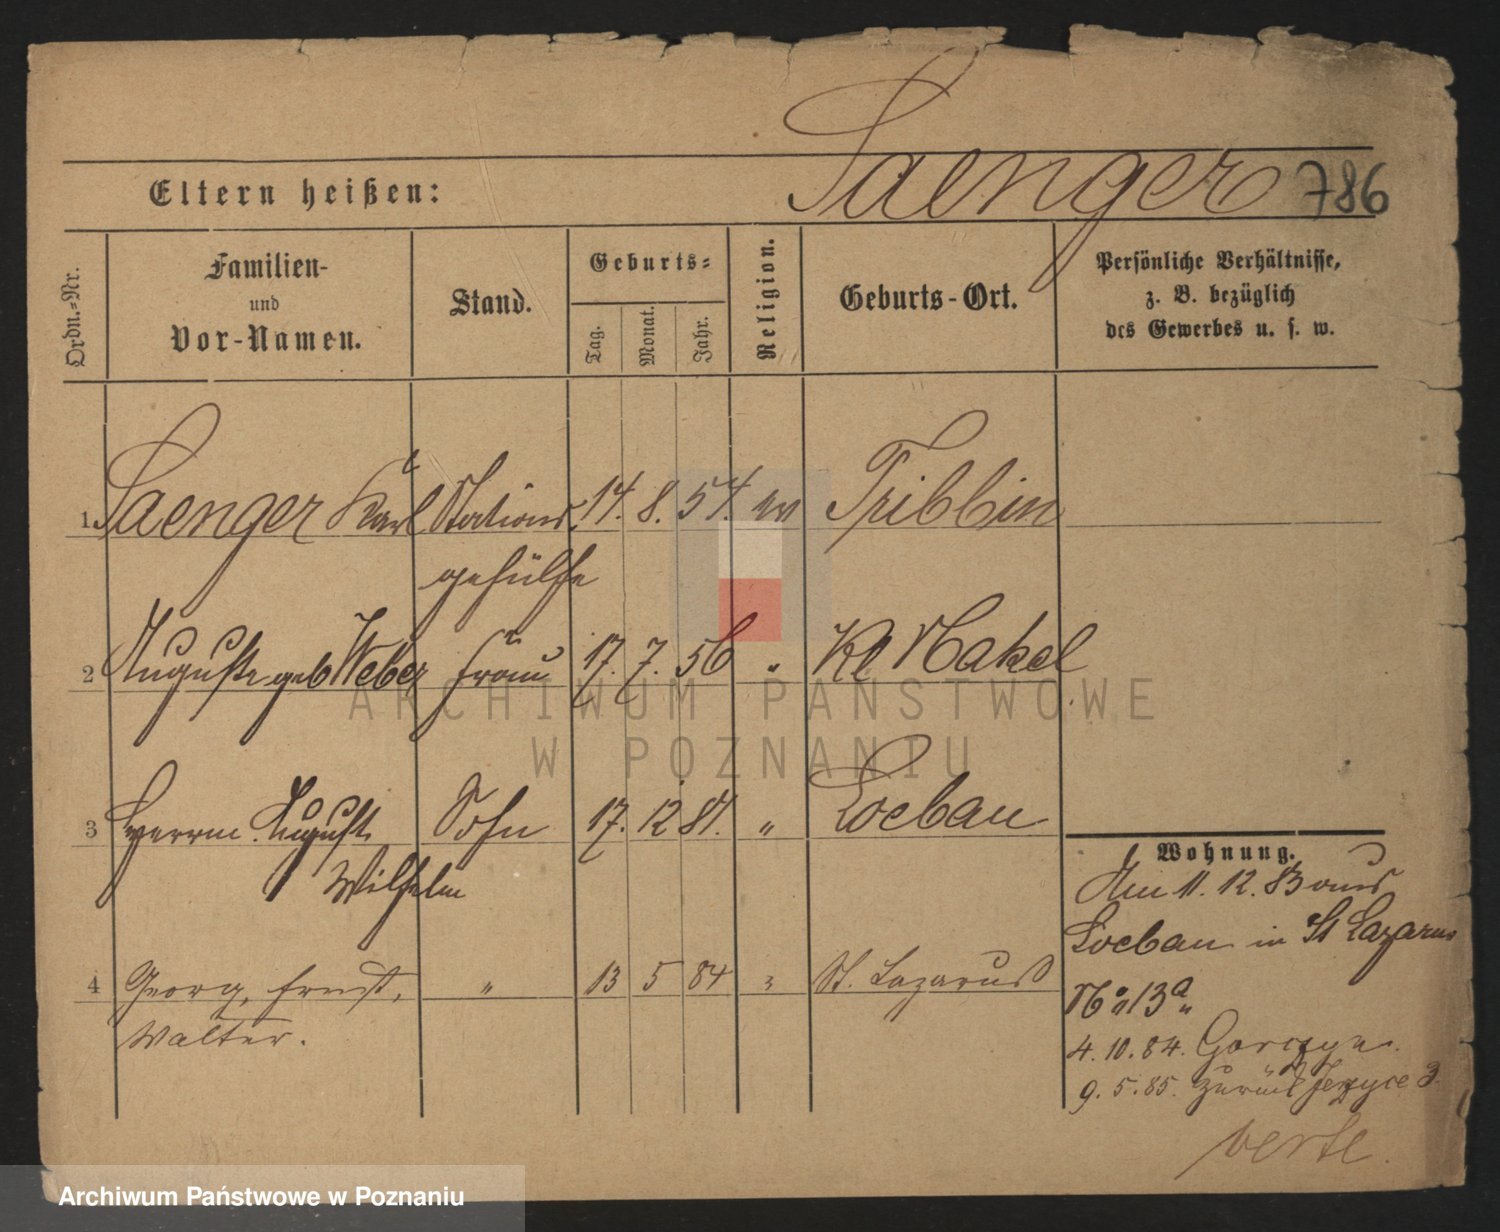 Saenger 786
Eltern heißen:
Ordn.-Nr.
Familien-
und
Vor-Namen.
Stand.
Geburts-
Tag.
Monat.
Jahr.
Religion.
Geburts-Ort.
Persönliche Verhältnisse,
z. B. bezüglich
des Gewerbes u. s. w.
1 Saenger Karl Stations- 14. 8. 54. ev Tribbin
gehülfe
2 Auguste geb Weber Frau 17. 7. 56 " Kl Nakel
3 Herrm. August Sohn 17. 12 81. " Loebau
Wilhelm
4 Georg, Ernst, " 13 5 84 " St. Lazarus
Walter.
Wohnung.
Am 11. 12. 83 aus
Loebau in St Lazarus
No 13a
4. 10. 84. Gorczyn.
9. 5. 85. zurück Jerzyce 3
verte.
ARCHIWUM PAŃSTWOWE
W POZNANIU
Archiwum Państwowe w Poznaniu